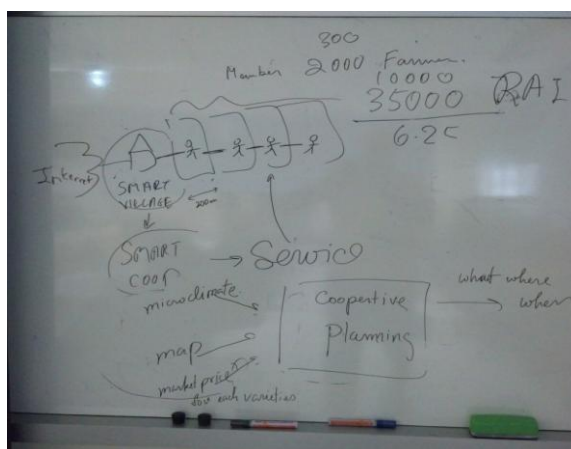 300
Member 2000 Farmer
10000
35000 RAI
6.25
Internet
A
SMART
VILLAGE
200m
SMART
COOP
Service
microclimate
map
market price
for each varieties
Coopertive
Planning
what where
when